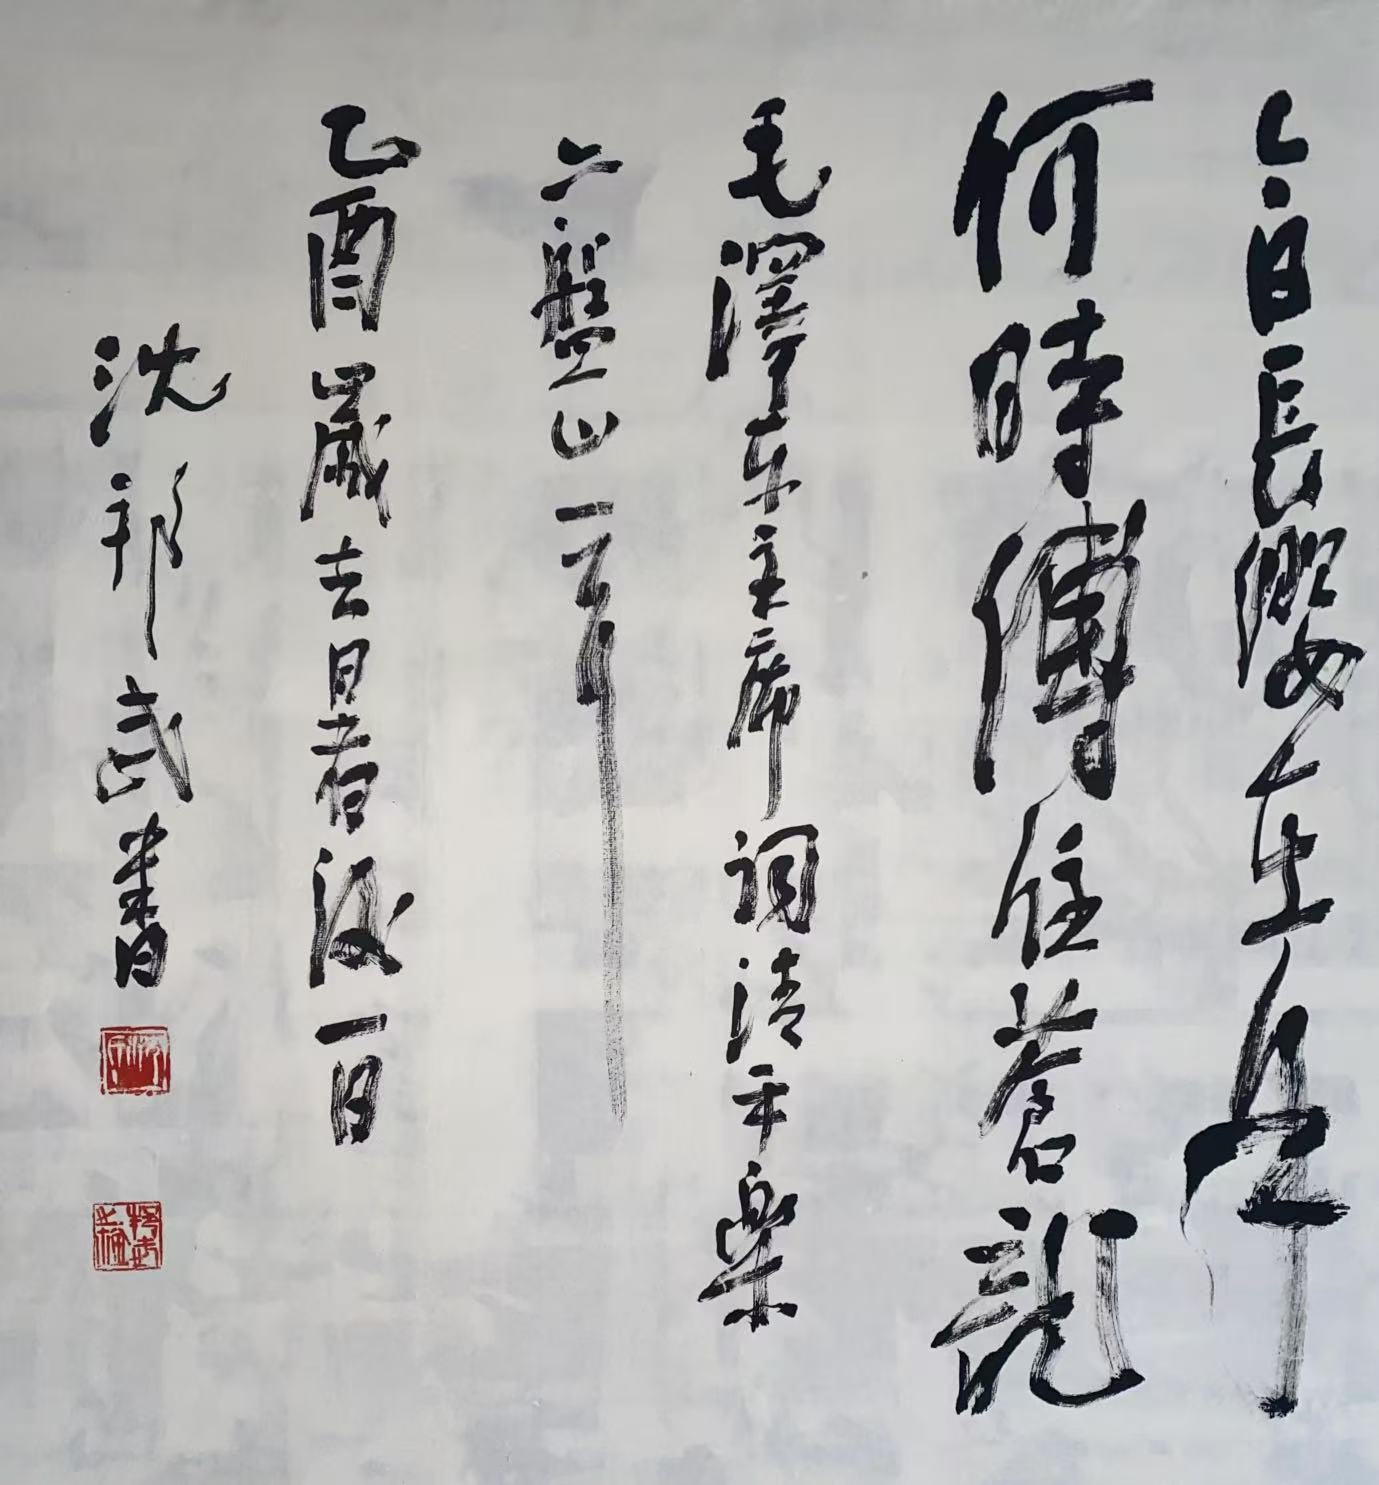 今日長纓在手
何時縛住蒼龍
毛澤東主席詞清平樂
六盤山一首
乙酉歲大暑後一日
沈邦武書